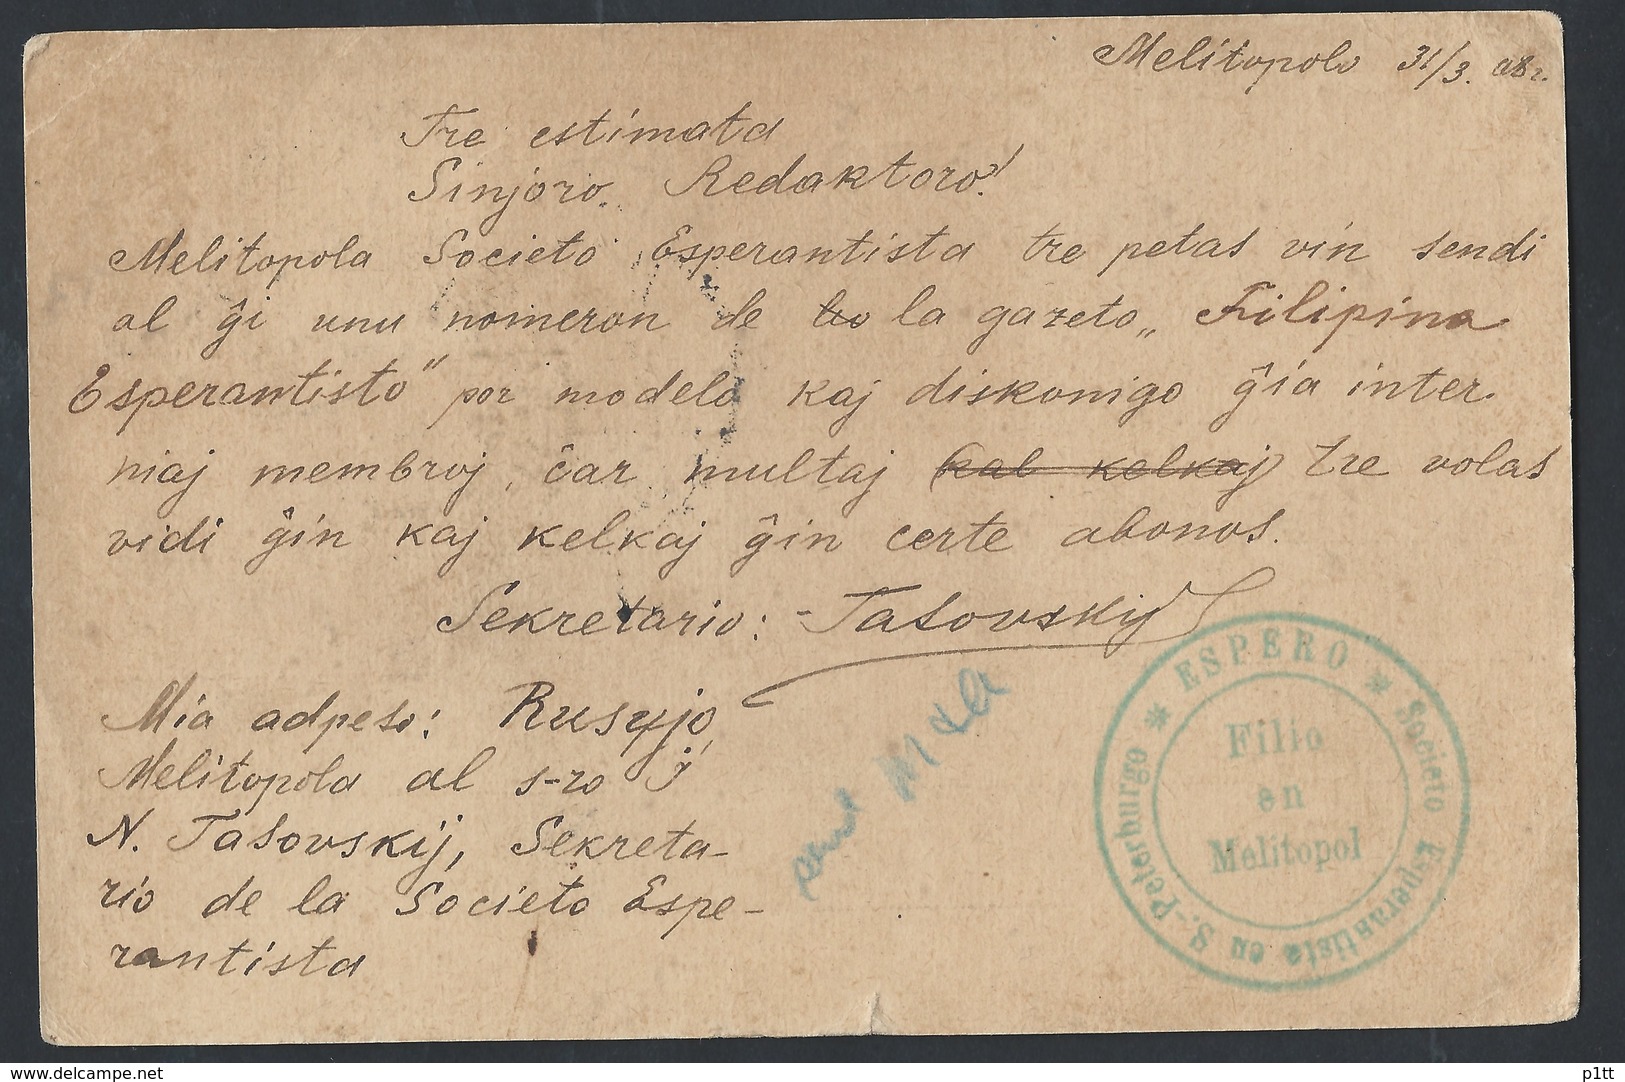 Melitopolo 31/3. 08 г.
Tre estimata
Sinjoro Redaktoro!
Melitopola Societo Esperantista tre petas vin sendi
al ĝi unu nomeron de la gazeto „Filipina
Esperantisto" por modelo kaj diskonigo ĝia inter
niaj membroj, ĉar multaj kal kelkaj tre volas
vidi ĝin kaj kelkaj ĝin certe abonos.
Sekretario: - Tasovskij
Mia adpeso: Rusujo,
Melitopola al s-ro J
N. Tasovskij, Sekreta-
rio de la Societo Espe-
rantista
* ESPERO * Societo Esperantista en S.-Peterburgo
Filio
en
Melitopol
www.delcampe.net
p1tt